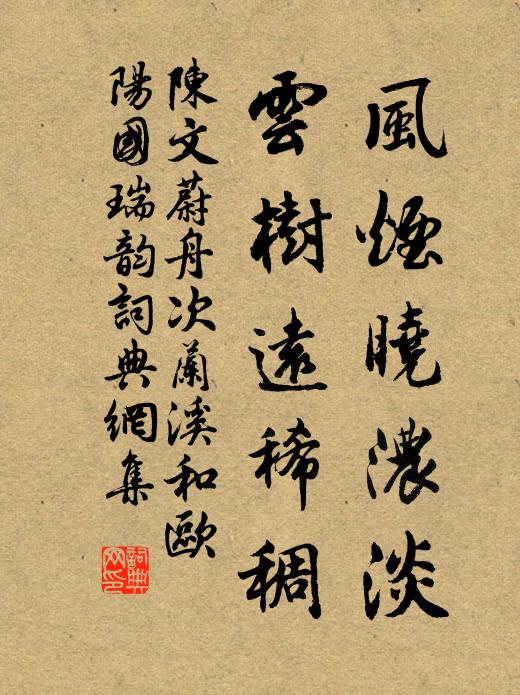 風煙曉濃淡
雲樹遠稀稠
陳文蔚舟次蘭溪和歐
陽國瑞韵詞典網集
詞典
网印